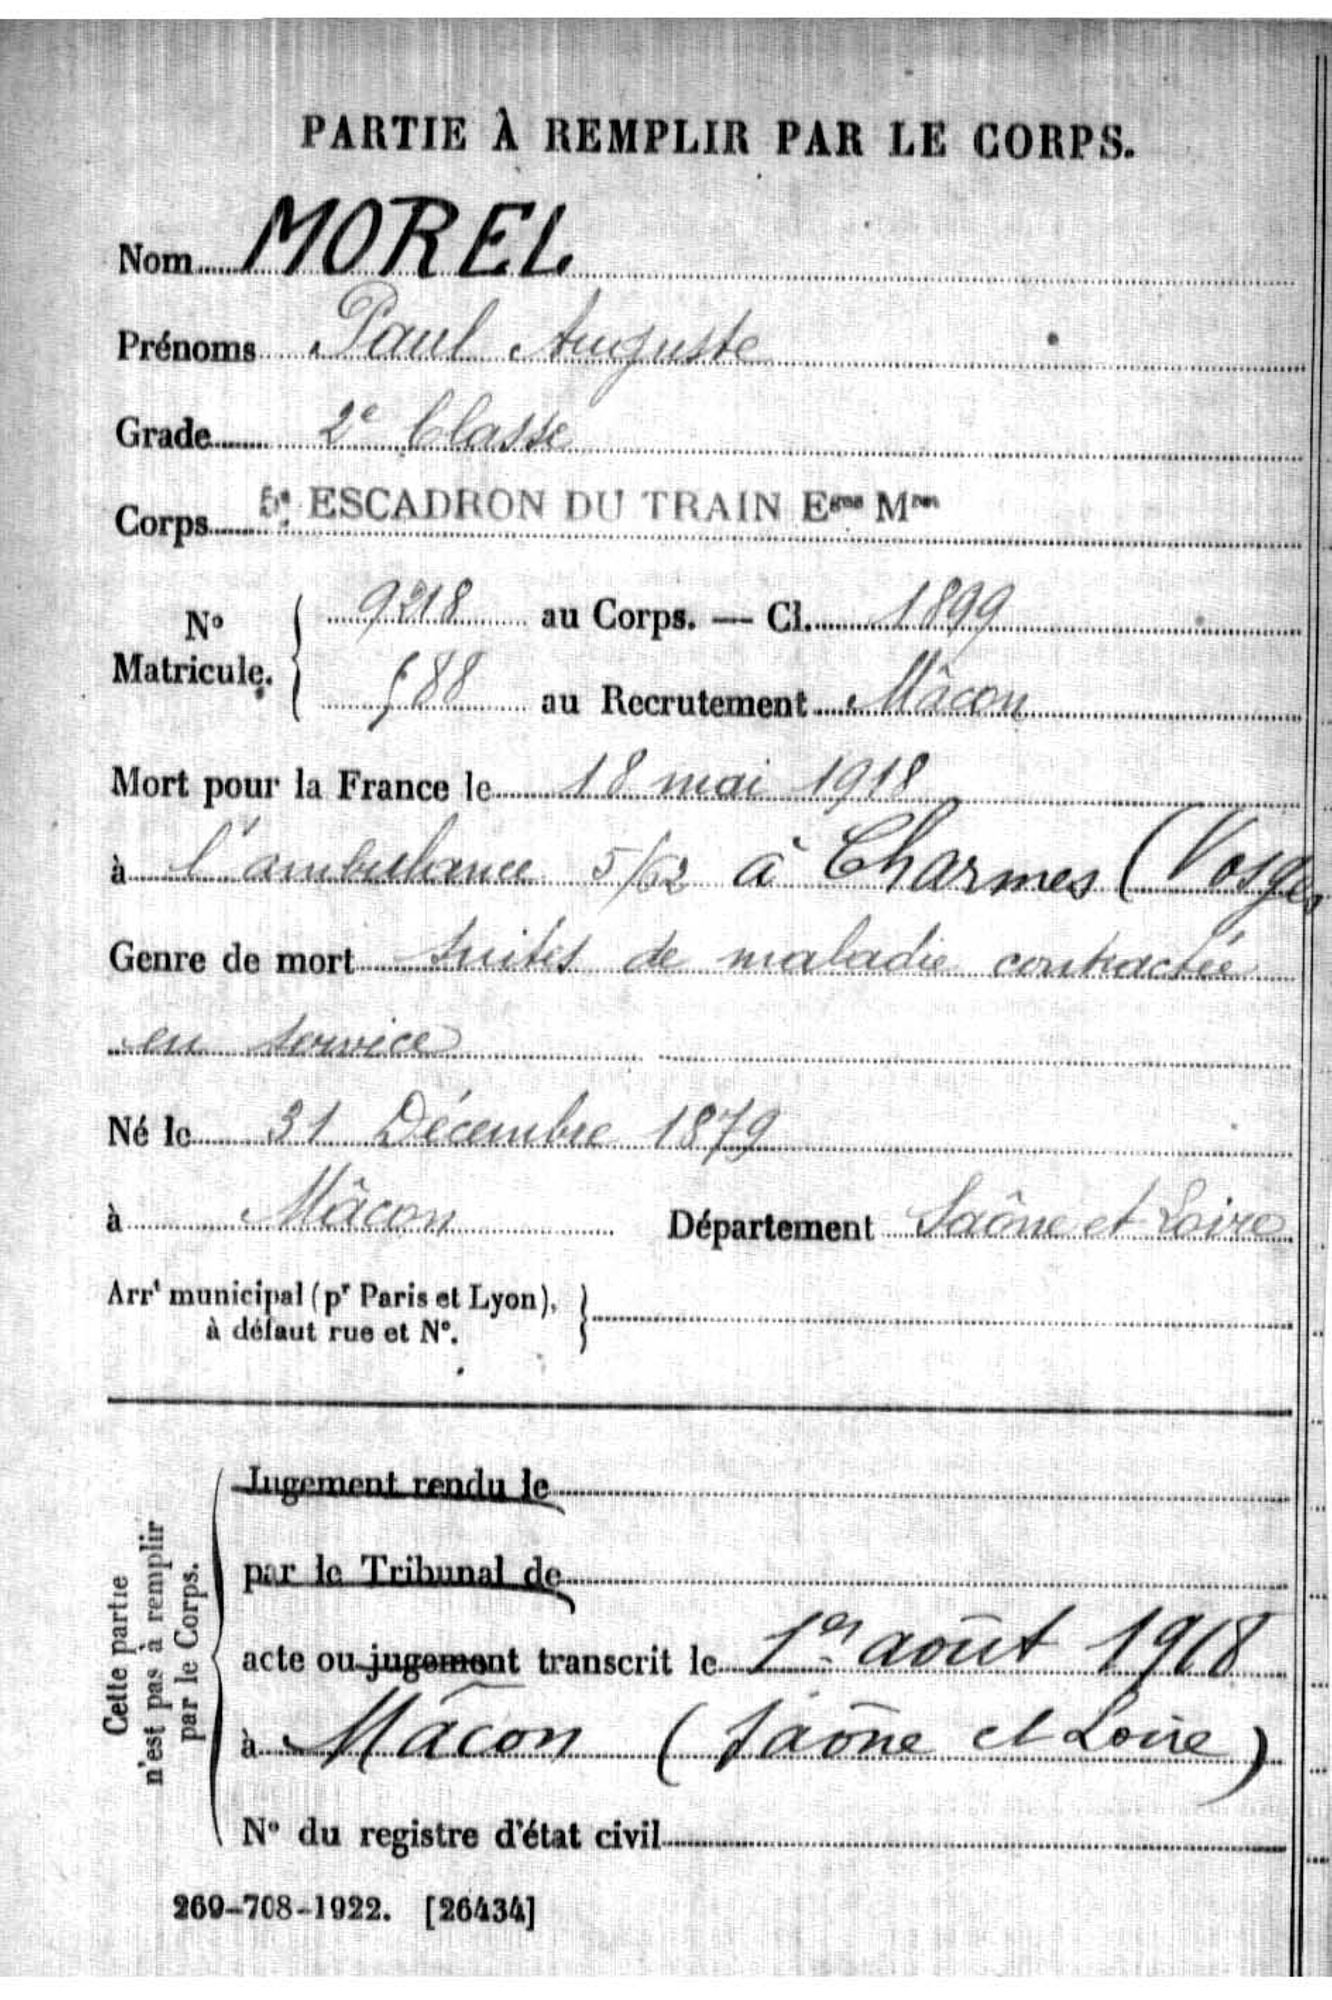 PARTIE À REMPLIR PAR LE CORPS.
Nom MOREL
Prénoms Paul Auguste
Grade 2e Classe
Corps 5e ESCADRON DU TRAIN Eges Mres
No Matricule. { 9218 au Corps. — Cl. 1899
588 au Recrutement Mâcon
Mort pour la France le 18 mai 1918
à l'ambulance 5/62 à Charmes (Vosges
Genre de mort suites de maladie contractée
en service
Né le 31 Décembre 1879
à Mâcon Département Saône et Loire
Arrt municipal (pr Paris et Lyon), }
à défaut rue et No.
Cette partie
n'est pas à remplir
par le Corps.
Jugement rendu le
par le Tribunal de
acte ou jugement transcrit le 1er août 1918
à Mâcon (Saône et Loire)
No du registre d'état civil
269-708-1922. [26434]